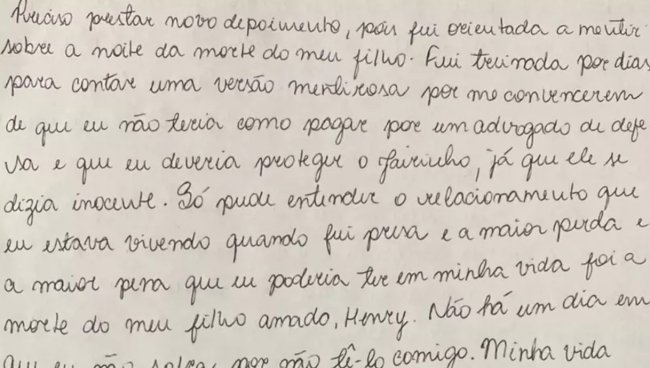 Preciso prestar novo depoimento, pois fui orientada a mentir
sobre a noite da morte do meu filho. Fui treinada por dias
para contar uma versão mentirosa por me convencerem
de que eu não teria como pagar por um advogado de defe
sa e que eu deveria proteger o Jairinho, já que ele se
dizia inocente. Só pude entender o relacionamento que
eu estava vivendo quando fui presa e a maior perda e
a maior pena que eu poderia ter em minha vida foi a
morte do meu filho amado, Henry. Não há um dia em
que eu não por não tê-lo comigo. Minha vida